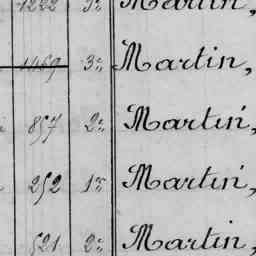 1222 3º Martin,
1469 3º Martin,
857 2º Martin,
252 1º Martin,
521 2º Martin,